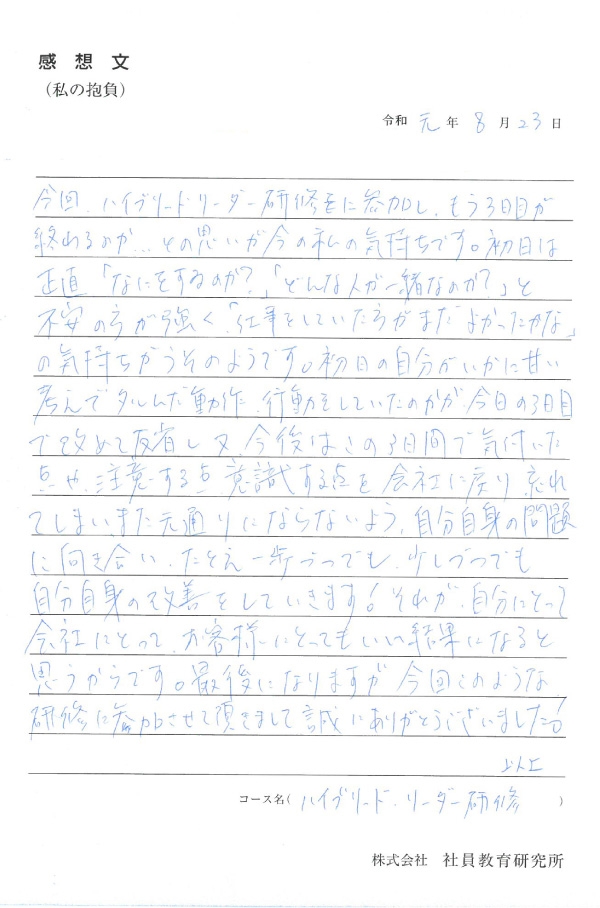 感想文
(私の抱負)
令和 元 年 8 月 23 日
今回、ハイブリードリーダー研修をに参加し、もう3日目が
終わるのか…その思いが今の私の気持ちです。初日は
正直「なにをするのか?」「どんな人が一緒なのか?」と
不安の方が強く「仕事をしていた方がまだよかったかな」
の気持ちがうそのようです。初日の自分がいかに甘い
考えでタルんだ動作、行動をしていたのかが今日の3日目
で改めて反省し又、今後はこの3日間で気付いた
点や、注意する点、意識する点を会社に戻り忘れ
てしまいまた元通りにならないよう、自分自身の問題
に向き合い、たとえ一歩づつでも、少しづつでも
自分自身の改善をしていきます!それが、自分にとって
会社にとって、お客様にとってもいい結果になると
思うからです。最後になりますが 今回このような
研修に参加させて頂きまして誠にありがとうございました!
以上
コース名( ハイブリード・リーダー研修 )
株式会社 社員教育研究所